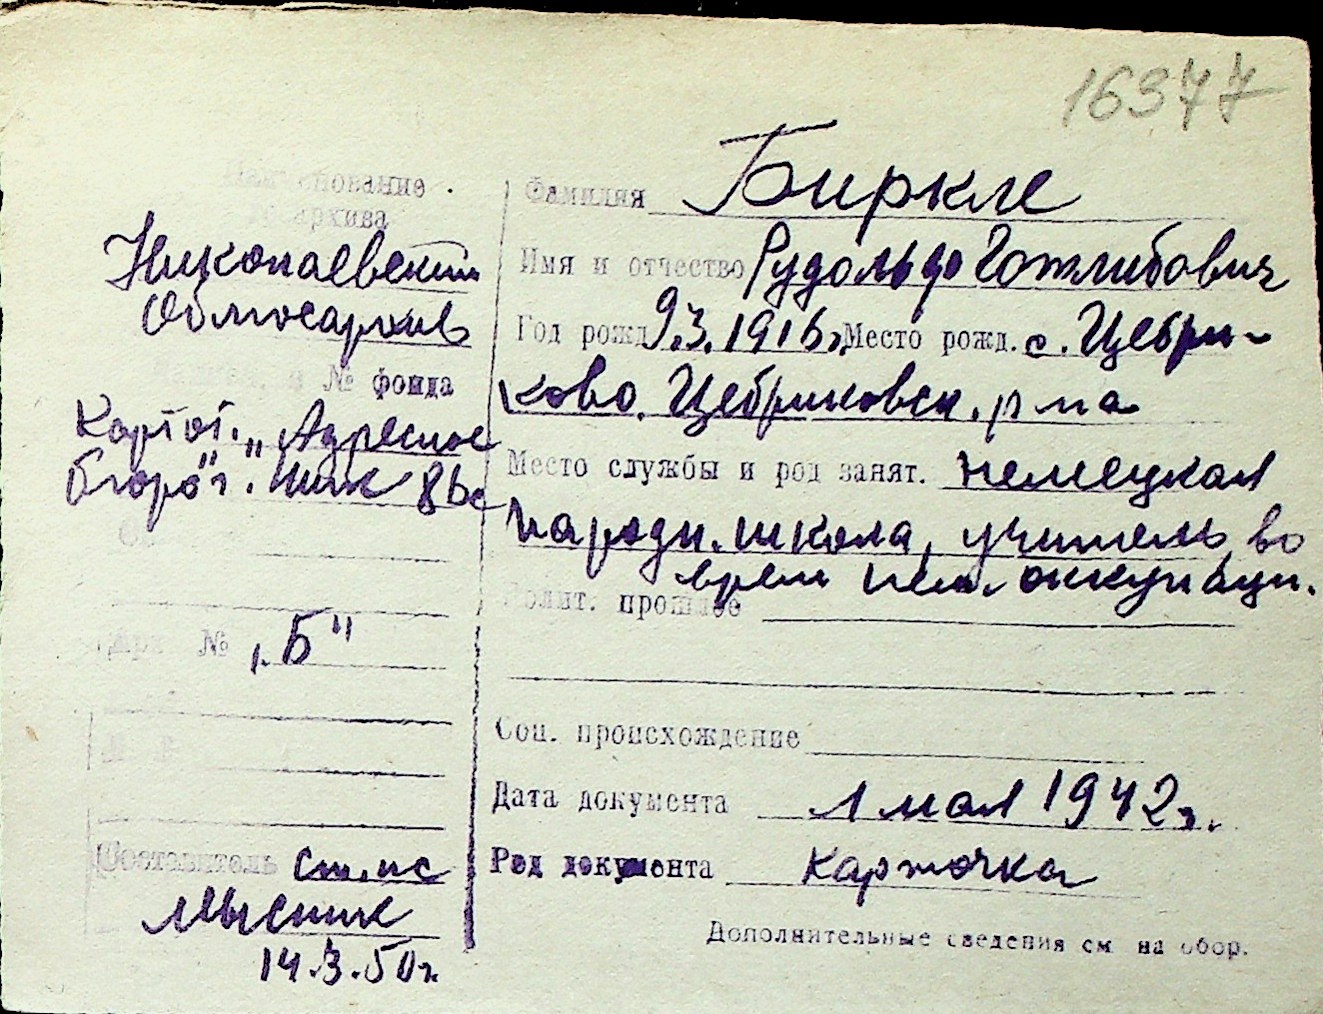 16377
Наименование
госархива
Николаевский
Облгосархив
№ фонда
Картот. „Адресное
бюро" г. Ник
№ „Б"
Составитель ст. нс
Мысник
14.3.50г.
Фамилия Биркле
Имя и отчество Рудольф Готлибович
Год рожд 9.3.1916г. Место рожд. с. Цебри-
ково, Цебриковск. р на
Место службы и род занят. немецкая
народн. школа, учитель во
врем нем. оккупации.
Полит. прошлое
Соц. происхождение
Дата документа 1 мая 1942г.
Род документа карточка
Дополнительные сведения см на обор.